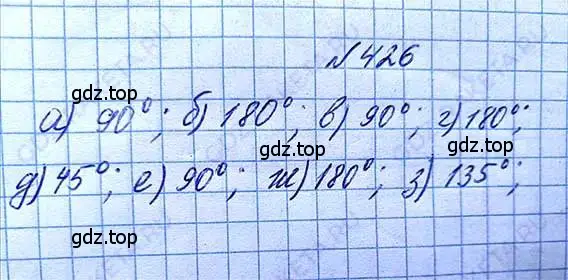 №426
gdz.top
а) 90°; б) 180°; в) 90°; г) 180°;
gdz.top
gdz.top
д) 45°; е) 90°; ж) 180°; з) 135°;
gdz.top
gdz.top